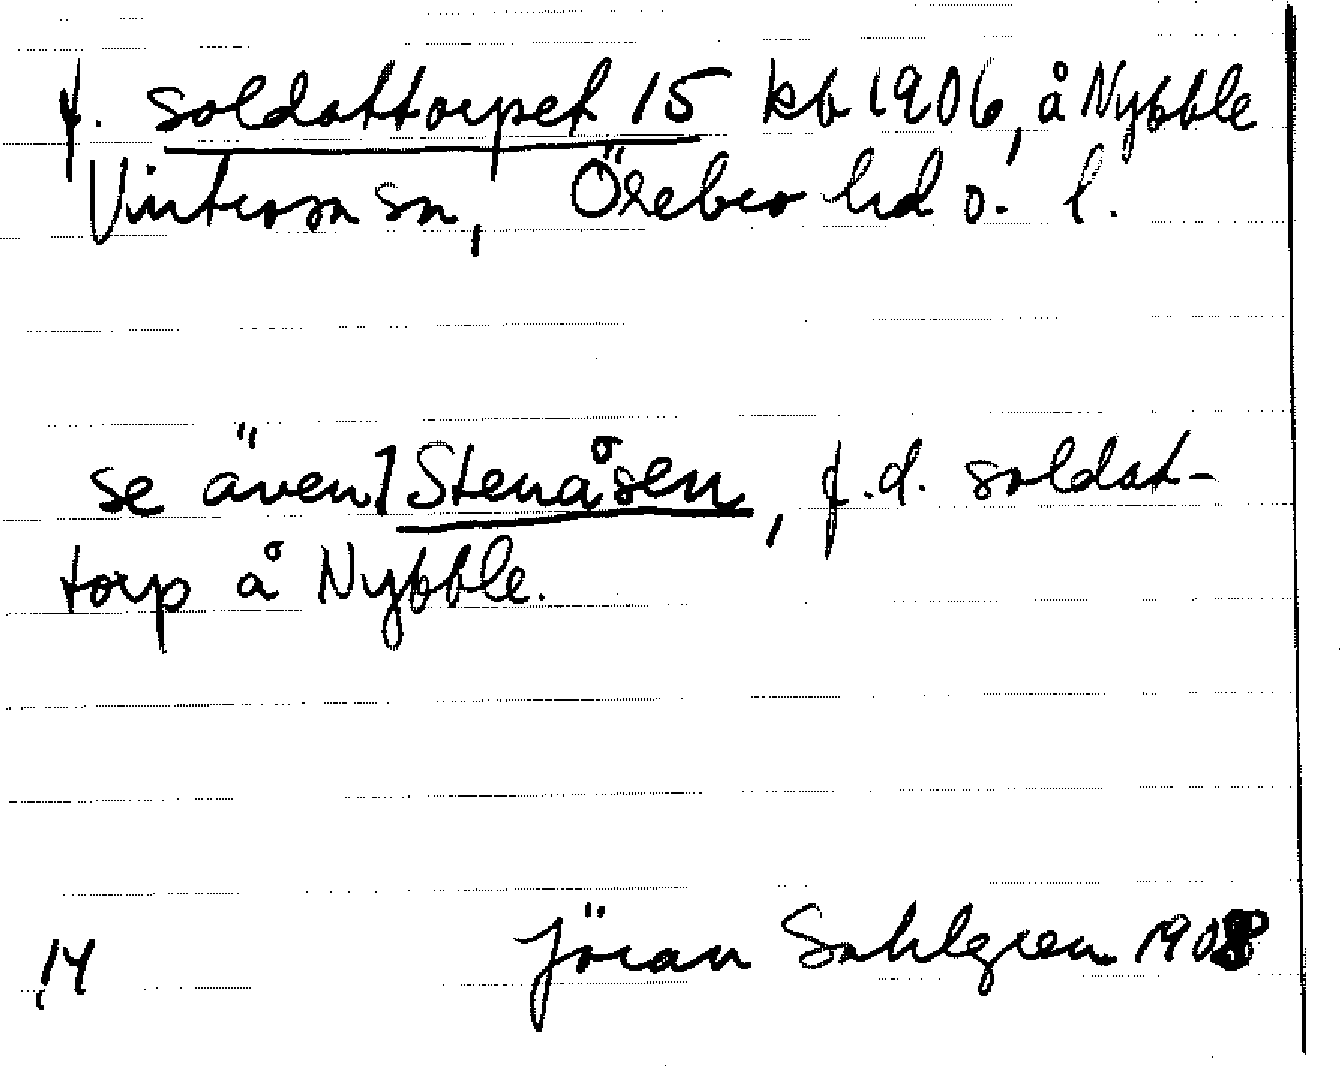 f. soldattorpet 15 kb 1906, å Nybble
Vintrosa sn, Örebro hd o. l.
se även 1 Stenåsen, f.d. soldat-
torp å Nybble.
14 Jöran Sahlgren 1908